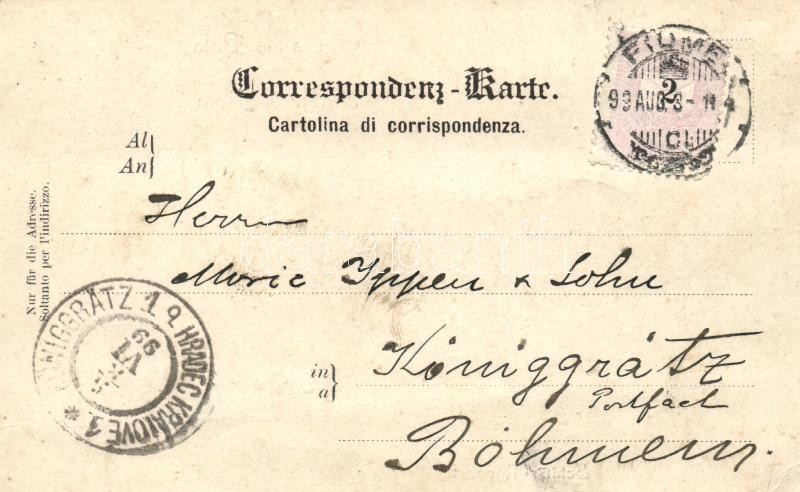 Correspondenz-Karte.
Cartolina di corrispondenza.
FIUME
99 AUG. 3-
2
Al
An
Herrn
Moric Ippen & Sohn
in
a
Königgrätz
Postfach
Böhmen.
Nur für die Adresse.
Soltanto per l'indirizzo.
KÖNIGGRÄTZ 1
HRADEC KRÁLOVÉ 1
99